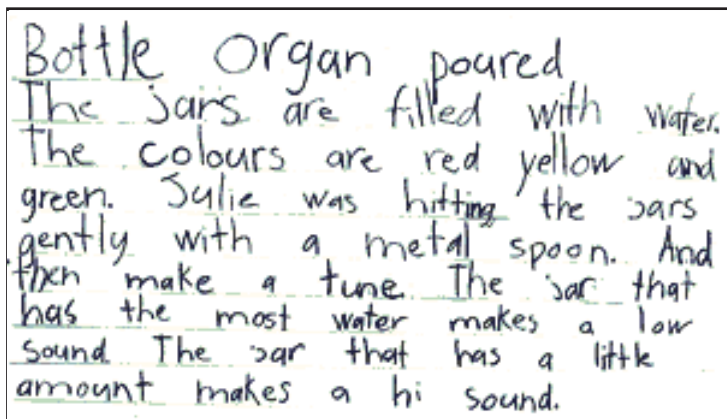 Bottle Organ poured
The jars are filled with water.
The colours are red yellow and
green. Julie was hitting the jars
gently with a metal spoon. And
then make a tune. The jar that
has the most water makes a low
sound The jar that has a little
amount makes a hi sound.